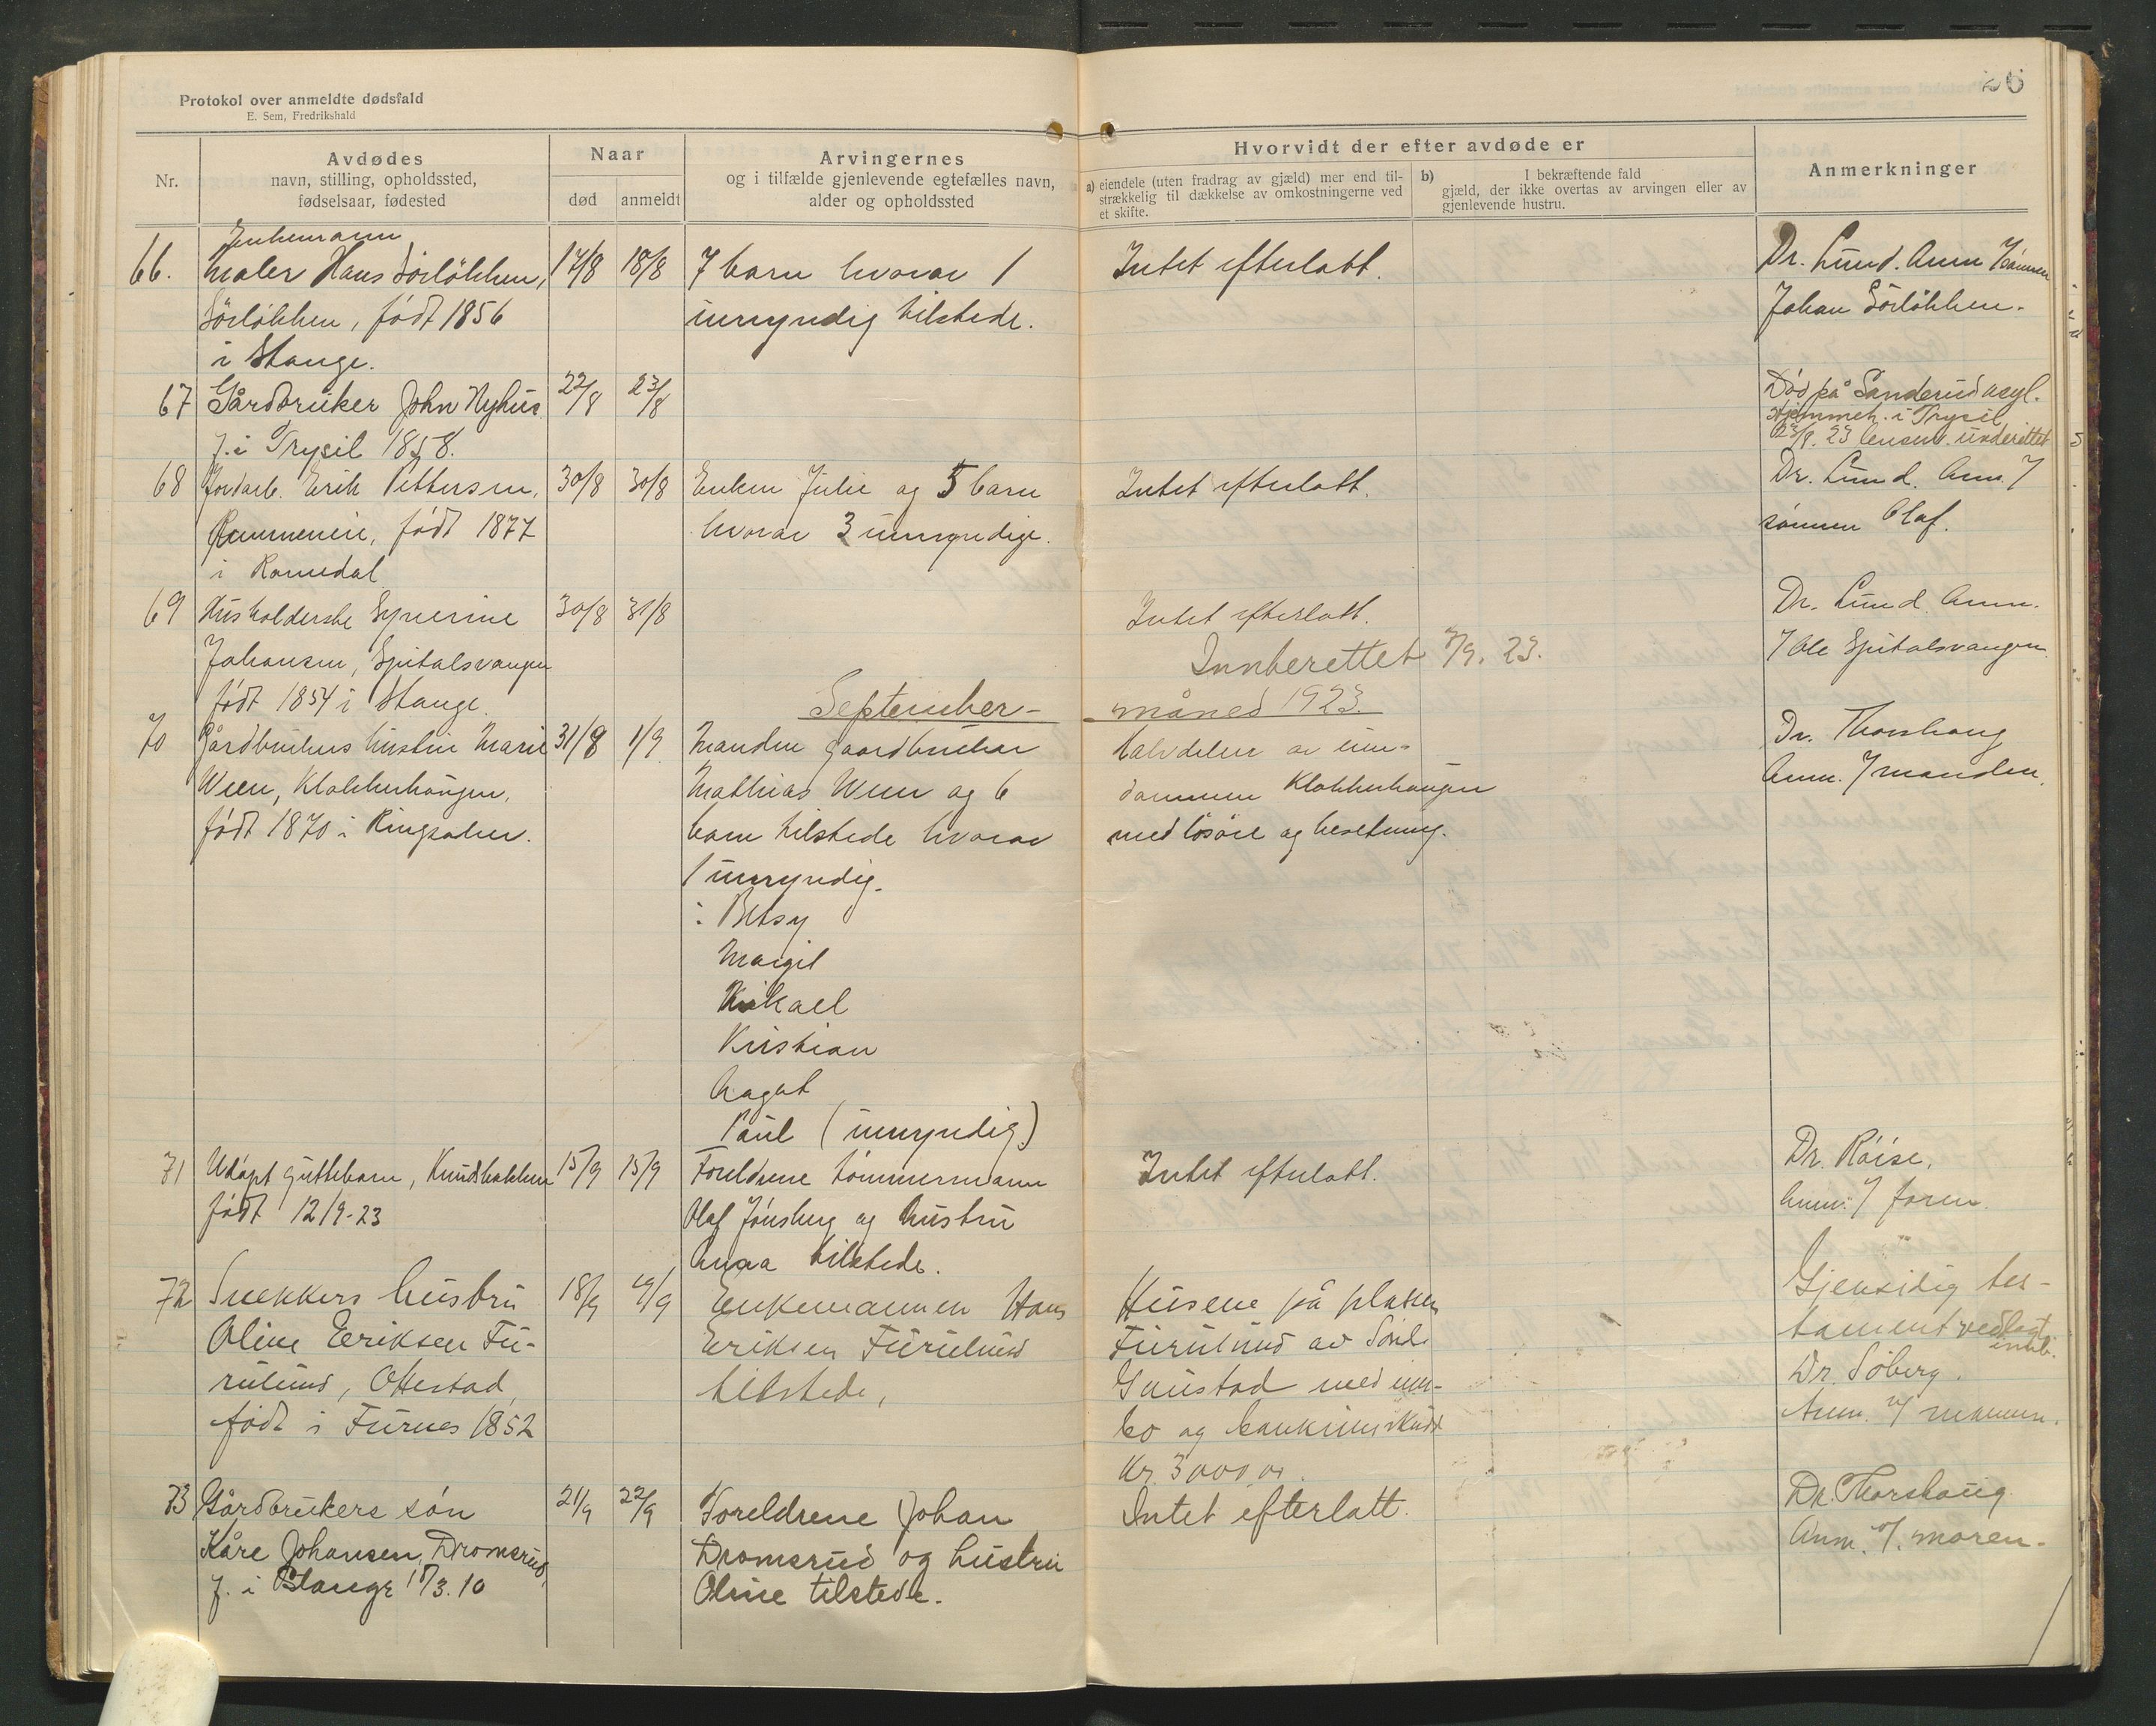 26
Protokol over anmeldte dødsfald
E. Sem, Fredrikshald
Nr.
Avdødes
navn, stilling, opholdssted,
fødselsaar, fødested
Naar
død
anmeldt
Arvingernes
og i tilfælde gjenlevende egtefælles navn,
alder og opholdssted
Hvorvidt der efter avdøde er
a) eiendele (uten fradrag av gjæld) mer end til-
strækkelig til dækkelse av omkostningerne ved
et skifte.
b) I bekræftende fald
gjæld, der ikke overtas av arvingen eller av
gjenlevende hustru.
Anmerkninger
Enkemann
66. Maler Hans Sörlökken, 17/8 18/8 7 barn hvorav 1 Intet efterlatt. Dr. Lund. Anm. / sönnen
Sörlökken, født 1856 umyndig tilstede. Johan Sörlökken.
i Stange.
67 Gårdbruker John Nyhus 22/8 23/8 Död på Sanderud asyl.
f. i Trysil 1858. Hjemmeh. i Trysil
23/8. 23 lensm. underettet
68 Jordarb. Erik Pettersen, 30/8 30/8 Enken Julie og 5 barn Intet efterlatt. Dr. Lund. Anm. /
født 1877 hvorav 3 umyndige. sönnen Olaf.
i Romedal
69 Husholderske Syverine 30/8 31/8 Intet efterlatt. Dr. Lund. Anm.
Johansen, Spitalsvangen Innberettet 3/9. 23. / Ole Spitalsvangen
født 1854 i Stange.
September- måned 1923.
70 Gårdbrukers hustru Marie 31/8 1/9 Manden gaardbruker Halvdelen av eien- Dr. Thorshaug
Ween, Klokkerhaugen, Mathias Ween og 6 dommen Klokkerhaugen Anm. / manden.
født 1870 i Ringsaker. barn tilstede hvorav med lösöre og besetning.
1 umyndig.
: Betsy
Margit
Mikael
Kristian
Aagot
Paul (umyndig)
71 Udöpt guttebarn, Knudsbakken 15/9 15/9 Foreldrene tömmermann Intet efterlatt. Dr. Röise.
født 12/9-23 Olaf Jönsberg og hustru Anm. / faren.
Anna tilstede.
72 Snekkers hustru 18/9 19/9 Enkemannen Hans Husene på plassen Gjensidig tes-
Oline Eriksen Fu- Eriksen Furulund Furulund av Söndre tament vedlagt
rulund, Ottestad, tilstede, Gaustad med inn- Dr. Söberg.
født i Furnes 1852 bo og bankinnskudd Anm. v/ mannen.
Kr. 3000,00.
73 Gårdbrukers sön 21/9 22/9 Foreldrene Johan Intet efterlatt. Dr. Thorshaug
Kåre Johansen, Dromsrud, Dromsrud og hustru Anm. v/. moren.
f. i Stange 17/3. 10 Oline tilstede.